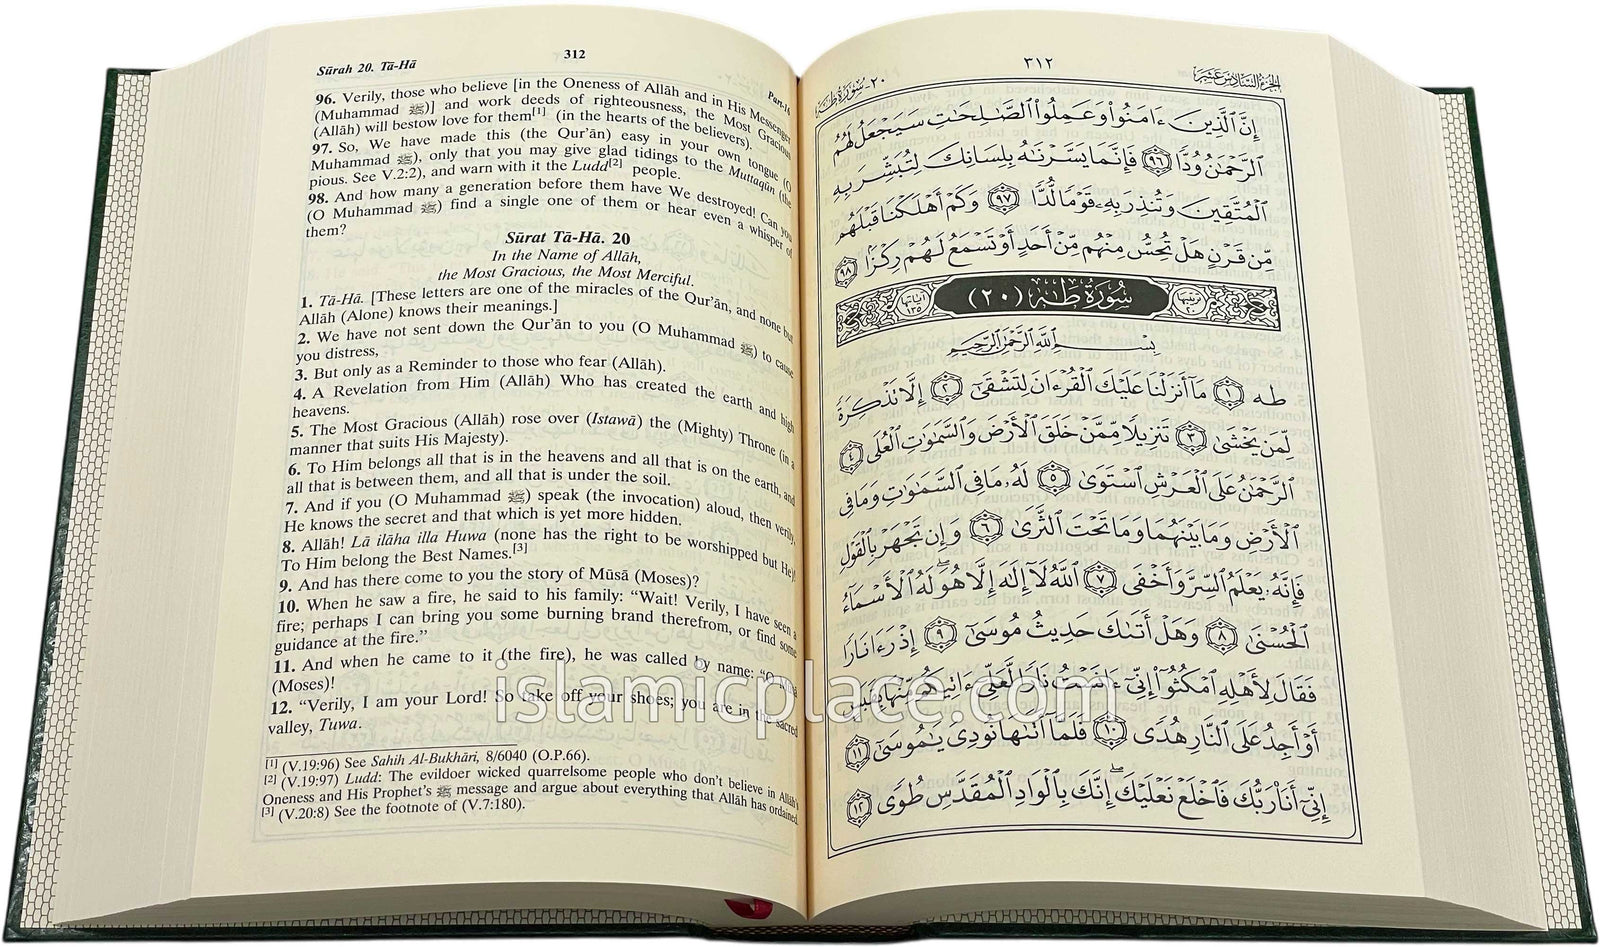 312
Sūrah 20. Tā-Hā
Part-16
96. Verily, those who believe [in the Oneness of Allāh and in His Messenger
(Muhammad ﷺ)] and work deeds of righteousness, the Most Gracious
(Allāh) will bestow love for them[1] (in the hearts of the believers).
97. So, We have made this (the Qur’ān) easy in your own tongue (O
Muhammad ﷺ), only that you may give glad tidings to the Muttaqūn (the
pious. See V.2:2), and warn with it the Ludd[2] people.
98. And how many a generation before them have We destroyed! Can you
(O Muhammad ﷺ) find a single one of them or hear even a whisper of
them?
Sūrat Tā-Hā. 20
In the Name of Allāh,
the Most Gracious, the Most Merciful.
1. Tā-Hā. [These letters are one of the miracles of the Qur’ān, and none but
Allāh (Alone) knows their meanings.]
2. We have not sent down the Qur’ān to you (O Muhammad ﷺ) to cause
you distress,
3. But only as a Reminder to those who fear (Allāh).
4. A Revelation from Him (Allāh) Who has created the earth and high
heavens.
5. The Most Gracious (Allāh) rose over (Istawā) the (Mighty) Throne (in a
manner that suits His Majesty).
6. To Him belongs all that is in the heavens and all that is on the earth, and
all that is between them, and all that is under the soil.
7. And if you (O Muhammad ﷺ) speak (the invocation) aloud, then verily,
He knows the secret and that which is yet more hidden.
8. Allāh! Lā ilāha illa Huwa (none has the right to be worshipped but He)!
To Him belong the Best Names.[3]
9. And has there come to you the story of Mūsā (Moses)?
10. When he saw a fire, he said to his family: “Wait! Verily, I have seen a
fire; perhaps I can bring you some burning brand therefrom, or find some
guidance at the fire.”
11. And when he came to it (the fire), he was called by name: “O Mūsā
(Moses)!
12. “Verily, I am your Lord! So take off your shoes; you are in the sacred
valley, Tuwa.
[1] (V.19:96) See Sahih Al-Bukhāri, 8/6040 (O.P.66).
[2] (V.19:97) Ludd: The evildoer wicked quarrelsome people who don’t believe in Allāh’s
Oneness and His Prophet’s ﷺ message and argue about everything that Allāh has ordained.
[3] (V.20:8) See the footnote of (V.7:180).
الجزء السادس عشر
٣١٢
٢٠- سورة طه
إِنَّ ٱلَّذِينَ ءَامَنُوا۟ وَعَمِلُوا۟ ٱلصَّـٰلِحَـٰتِ سَيَجْعَلُ لَهُمُ
ٱلرَّحْمَـٰنُ وُدًّا ٩٦ فَإِنَّمَا يَسَّرْنَـٰهُ بِلِسَانِكَ لِتُبَشِّرَ بِهِ
ٱلْمُتَّقِينَ وَتُنذِرَ بِهِۦ قَوْمًا لُّدًّا ٩٧ وَكَمْ أَهْلَكْنَا قَبْلَهُم
مِّن قَرْنٍ هَلْ تُحِسُّ مِنْهُم مِّنْ أَحَدٍ أَوْ تَسْمَعُ لَهُمْ رِكْزًۢا ٩٨
ترتيبها ٢٠ سُورَةُ طه (٢٠) آياتها ١٣٥
بِسْمِ ٱللَّهِ ٱلرَّحْمَـٰنِ ٱلرَّحِيمِ
طه ١ مَآ أَنزَلْنَا عَلَيْكَ ٱلْقُرْءَانَ لِتَشْقَىٰٓ ٢ إِلَّا تَذْكِرَةً
لِّمَن يَخْشَىٰ ٣ تَنزِيلًا مِّمَّنْ خَلَقَ ٱلْأَرْضَ وَٱلسَّمَـٰوَٰتِ ٱلْعُلَى ٤
ٱلرَّحْمَـٰنُ عَلَى ٱلْعَرْشِ ٱسْتَوَىٰ ٥ لَهُۥ مَا فِى ٱلسَّمَـٰوَٰتِ وَمَا فِى
ٱلْأَرْضِ وَمَا بَيْنَهُمَا وَمَا تَحْتَ ٱلثَّرَىٰ ٦ وَإِن تَجْهَرْ بِٱلْقَوْلِ
فَإِنَّهُۥ يَعْلَمُ ٱلسِّرَّ وَأَخْفَى ٧ ٱللَّهُ لَآ إِلَـٰهَ إِلَّا هُوَ ۖ لَهُ ٱلْأَسْمَآءُ
ٱلْحُسْنَىٰ ٨ وَهَلْ أَتَىٰكَ حَدِيثُ مُوسَىٰٓ ٩ إِذْ رَءَا نَارًا
فَقَالَ لِأَهْلِهِ ٱمْكُثُوٓا۟ إِنِّىٓ ءَانَسْتُ نَارًا لَّعَلِّىٓ ءَاتِيكُم مِّنْهَا بِقَبَسٍ
أَوْ أَجِدُ عَلَى ٱلنَّارِ هُدًى ١٠ فَلَمَّآ أَتَىٰهَا نُودِىَ يَـٰمُوسَىٰٓ ١١
إِنِّىٓ أَنَا۠ رَبُّكَ فَٱخْلَعْ نَعْلَيْكَ ۖ إِنَّكَ بِٱلْوَادِ ٱلْمُقَدَّسِ طُوًى ١٢
islamicplace.com